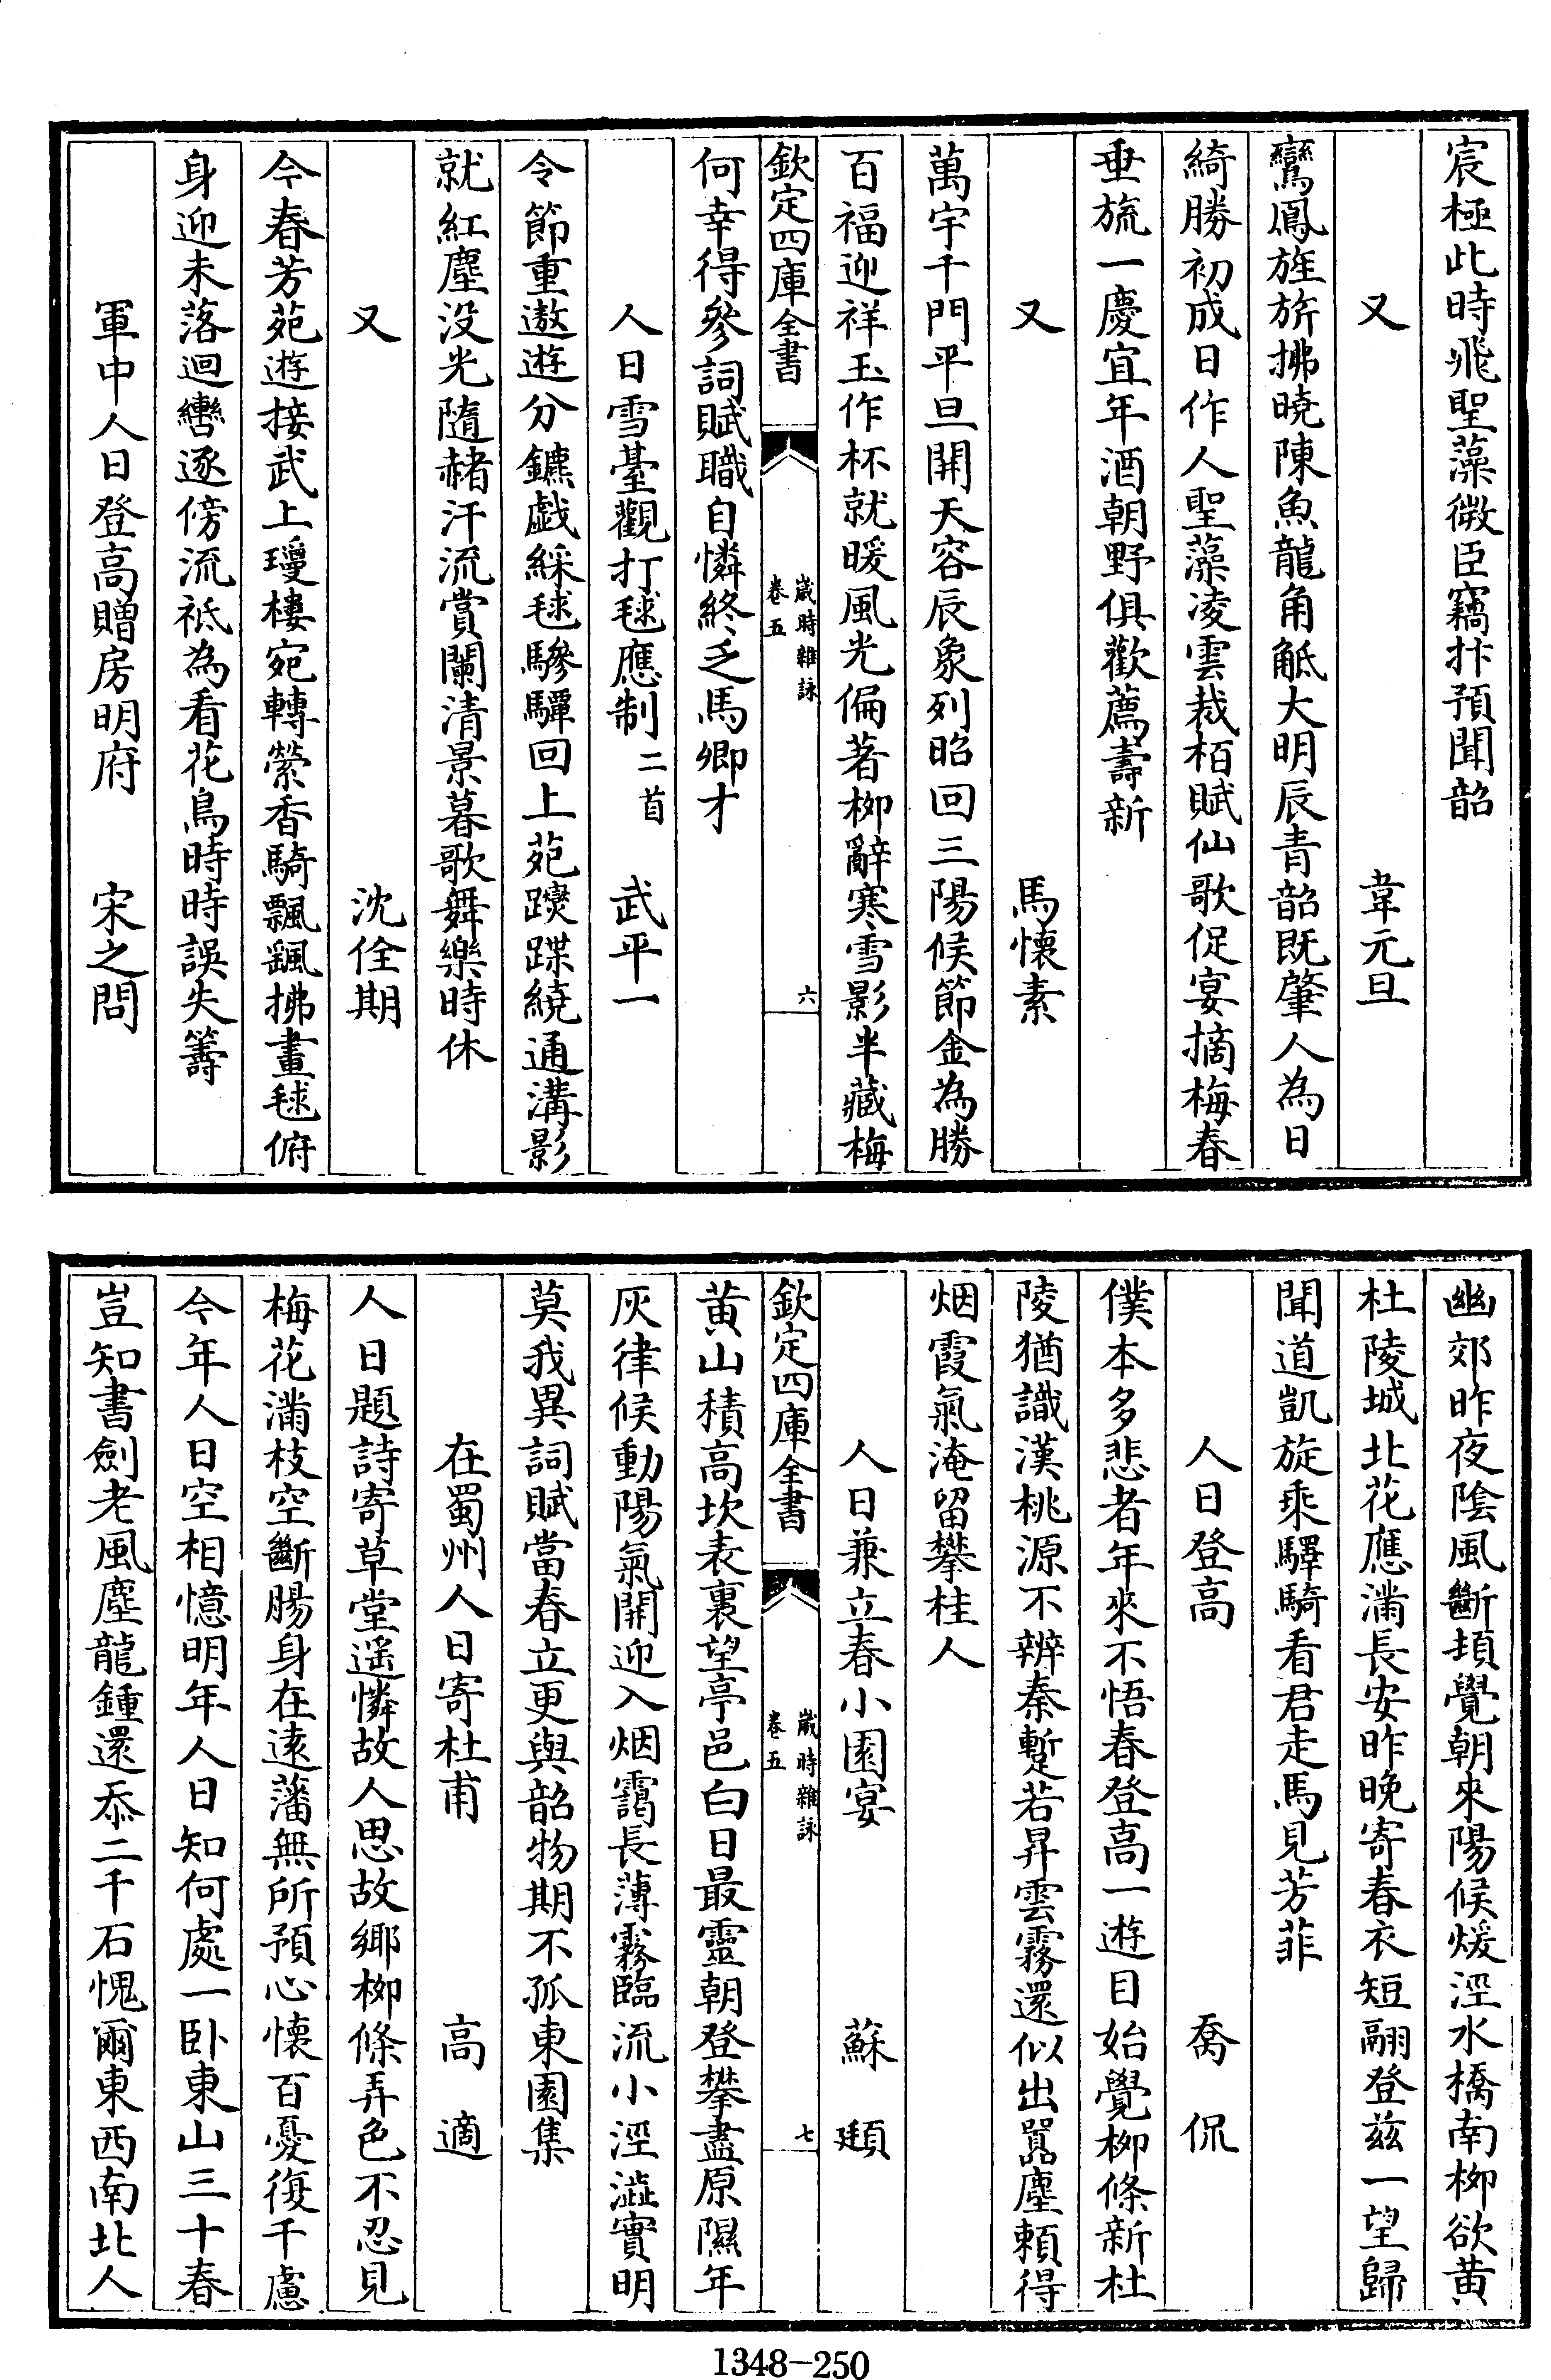 宸極此時飛聖藻微臣竊抃預聞韶
又　韋元旦
鸞鳳旌旂拂曉陳魚龍角觝大明辰青韶既肇人為日
綺勝初成日作人聖藻凌雲裁栢賦仙歌促宴摘梅春
垂旒一慶宜年酒朝野俱歡薦壽新
又　馬懷素
萬宇千門平旦開天容辰象列昭回三陽候節金為勝
百福迎祥玉作杯就暖風光偏著柳辭寒雪影半藏梅
欽定四庫全書　歲時雜詠卷五　六
何幸得參詞賦職自憐終乏馬卿才
人日雪臺觀打毬應制二首　武平一
令節重遨遊分鑣戯綵毬驂驔回上苑躞蹀繞通溝影
就紅塵没光隨赭汗流賞闌清景暮歌舞樂時休
又　沈佺期
今春芳苑遊接武上瓊樓宛轉縈香騎飄颻拂畫毬俯
身迎未落迴轡逐傍流祇為看花鳥時時誤失籌
軍中人日登高贈房明府　宋之問
幽郊昨夜陰風斷頓覺朝來陽候煖涇水橋南柳欲黄
杜陵城北花應滿長安昨晚寄春衣短翮登兹一望歸
聞道凱旋乘驛騎看君走馬見芳菲
人日登高　喬侃
僕本多悲者年來不悟春登高一遊目始覺柳條新杜
陵猶識漢桃源不辨秦蹔若昇雲霧還似出囂塵頼得
烟霞氣淹留攀桂人
人日兼立春小園宴　蘇頲
欽定四庫全書　歲時雜詠卷五　七
黄山積高坎表裏望亭邑白日最靈朝登攀盡原隰年
灰律候動陽氣開迎入烟靄長薄霧臨流小涇澁實明
莫我異詞賦當春立更與韶物期不孤東園集
在蜀州人日寄杜甫　高適
人日題詩寄草堂遥憐故人思故鄉柳條弄色不忍見
梅花滿枝空斷腸身在逺藩無所預心懷百憂復千慮
今年人日空相憶明年人日知何處一卧東山三十春
豈知書劍老風塵龍鍾還忝二千石愧爾東西南北人
1348-250